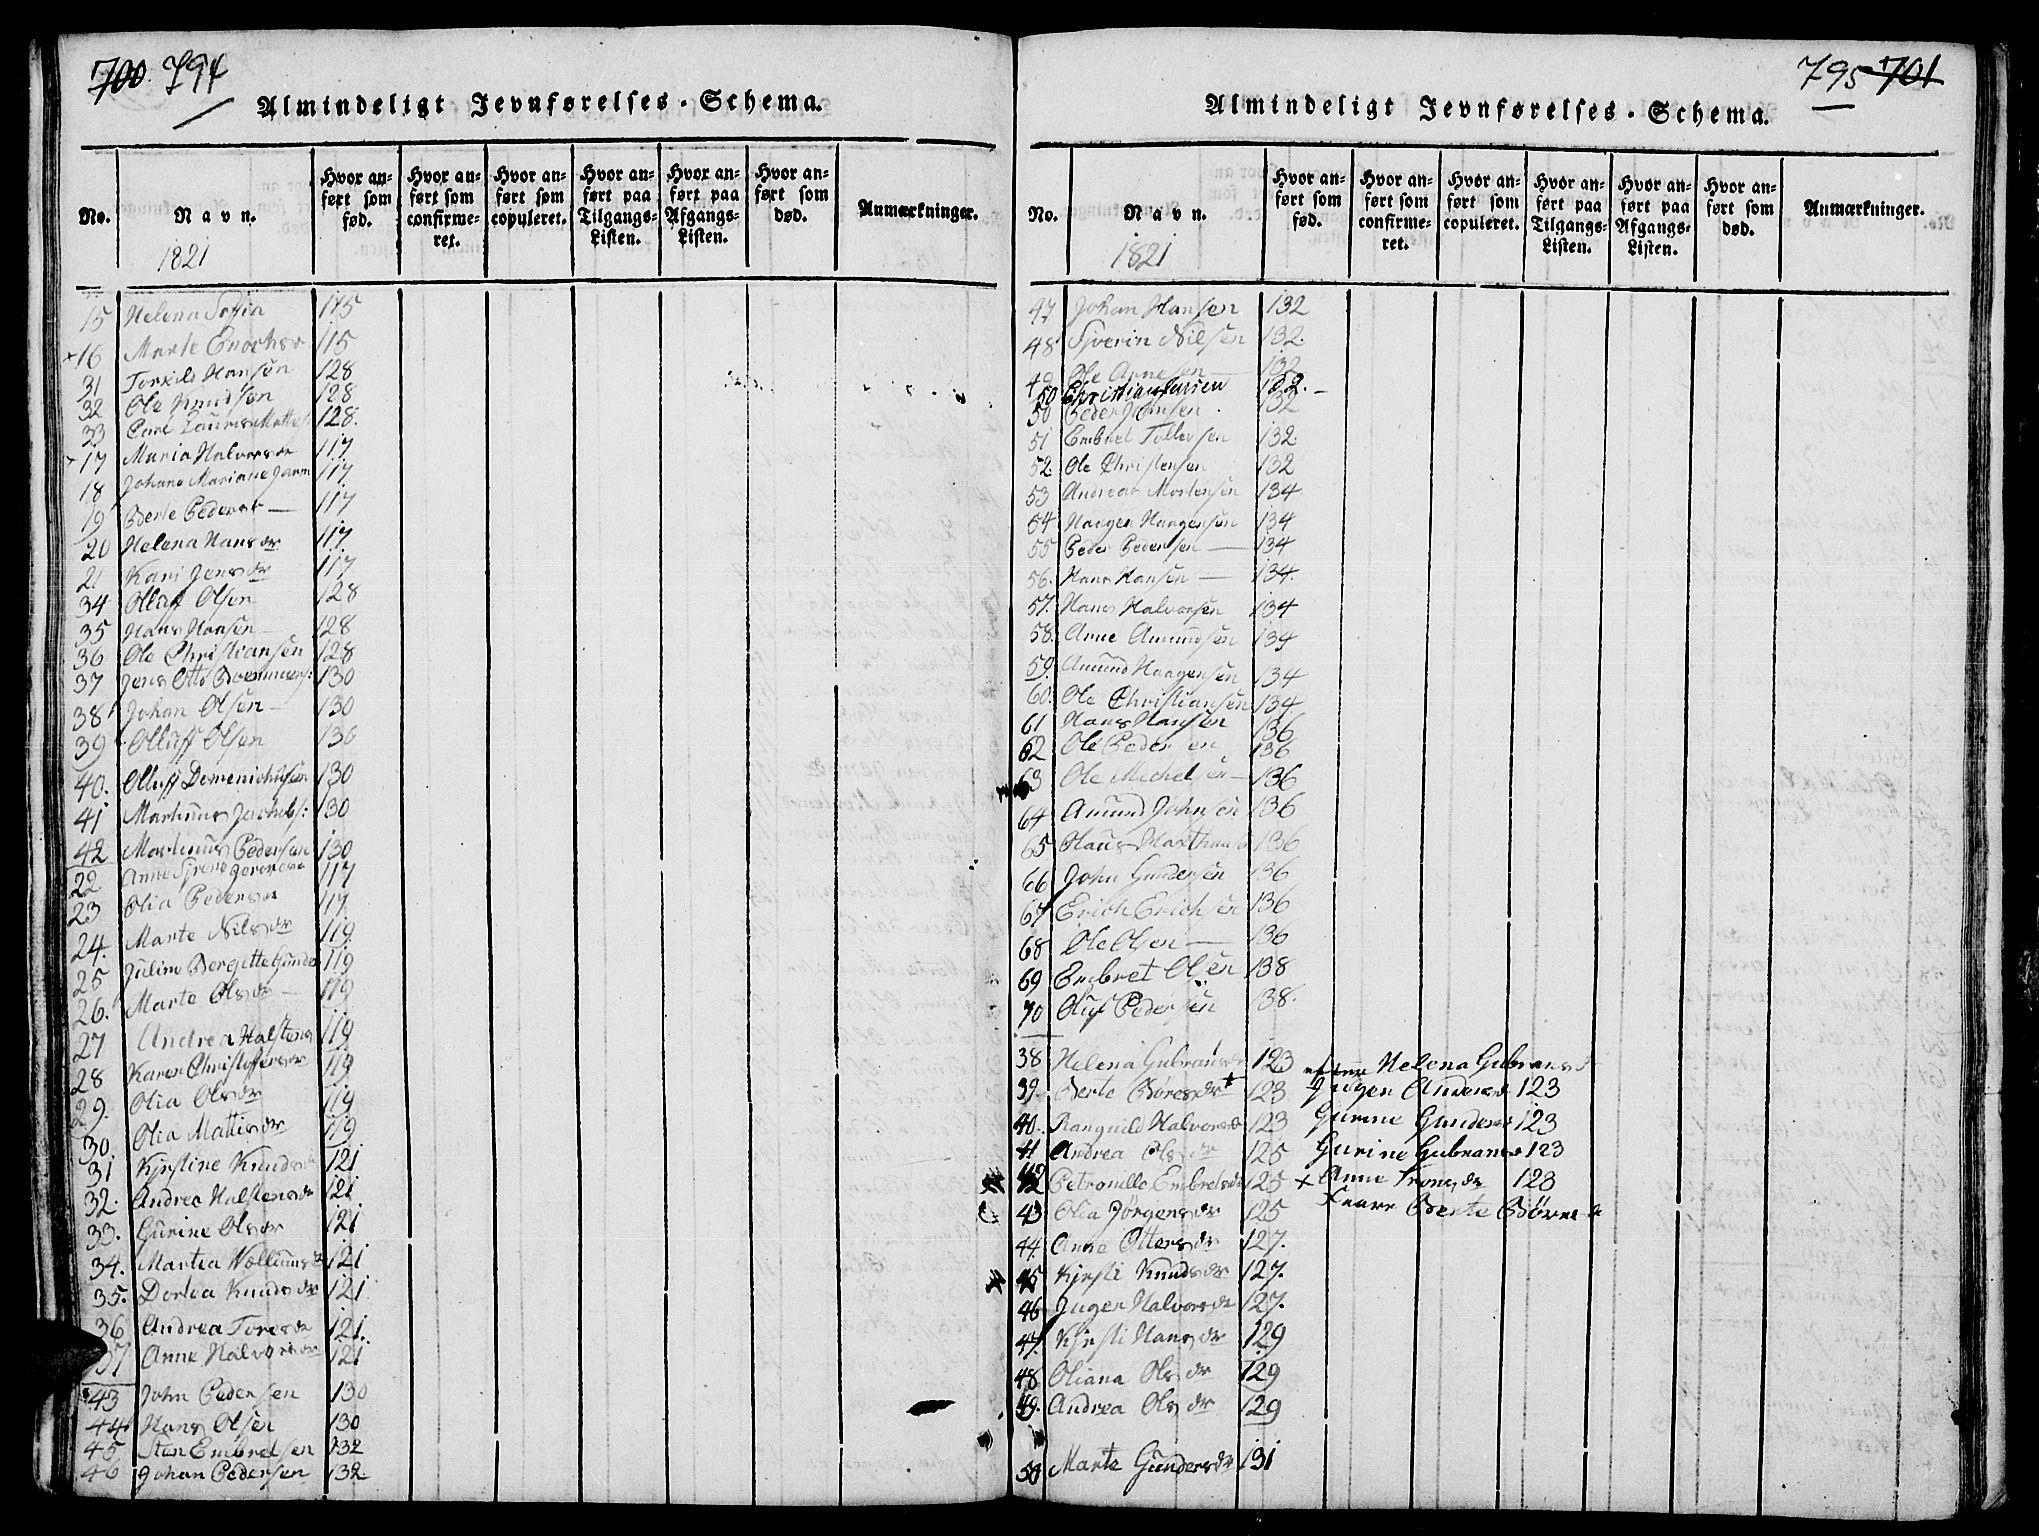 700 794
Almindeligt Jevnførelses-Schema.
No.
Navn.
Hvor anført som fød.
Hvor anført som confirmeret.
Hvor anført som copuleret.
Hvor anført paa Tilgangs-Listen.
Hvor anført paa Afgangs-Listen.
Hvor anført som død.
Anmærkninger.
1821
15 Helena Sofia 115
16 Marte Enochsdr 115
31 Torkild Hansen 128
32 Ole Knudsen 128
33 Carl Laurits 128.
17 Maria Halvorsdr 117
18 Johane Mariane 117
19 Berte Pedersdr 117
20 Helena Hansdr 117
21 Kari Jensdr 117
34 Olluff Olsen 128
35 Hans Hansen 128
36 Ole Christiansen 128
37 Jens Otto 130
38 Johan Olsen 130
39 Olluff Olsen 130
40. Olluff 130
41 Martinus Jachobs: 130
42 Martinus Pedersen 130
22 Anne 117
23 Olia Pedersdr 117
24. Marte Nilsdr 119
25 Juline Bergitte Gunder 119
26. Marte Olsdr 119
27 Andrea Halstens 119
28 Karen Christofersdr 119
29. Olia Olsdr 119
30. Olia Mattisdr 119
31 Kjerstine Knudsdr 121
32. Andrea Halstensdr 121
33. Gurine Olsdr 121
34. Martea 121
35. Dortea Knudsdr 121
36 Andrea Toresdr 121.
37 Anne Halvorsdr 121
43 John Pedersen 130
44 Hans Olsen 130
45 Sten Embretsen 132
46 Johan Pedersen 132
795 701
Almindeligt Jevnførelses-Schema.
No.
Navn.
Hvor anført som fød.
Hvor anført som confirmeret.
Hvor anført som copuleret.
Hvor anført paa Tilgangs-Listen.
Hvor anført paa Afgangs-Listen.
Hvor anført som død.
Anmærkninger.
1821
47 Johan Hansen 132
48 Syverin Nilsen 132.
49 Ole Arnesen 132
50 Christian 132.
50 Peder Johnsen 132
51 Embret Tollevsen 132
52. Ole Christensen 132
53 Andreas Mortensen 134
54 Haagen Haagensen 134
55 Peder Pedersen 134
56. Hans Hansen 134.
57. Hans Halvorsen 134
58. Arne Amundsen 134
59 Amund Haagensen 134
60. Ole Christiansen 134
61 Hans Hansen 136
62 Ole Pedersen 136
63 Ole Michelsen 136
64 Amund Johnsen 136
65 Hans 136
66 John Gundersen 136
67 Erich Erichsen 136
68 Ole Olsen 136
69 Embret Olsen 138
70 Oluf Pedersen 138.
38 Helena Gubransdr 123 Helena Gubransdr
39. Berte Børesdr 123 Inger Andersdr 123
40. Rangnild Halvorsdr 123 Gurine Gundersdr 123
41 Andrea Olsdr 125 Gurine Gubransdr 123
42 Petronille Embretsdr 125 + Anne Tronsdr 123
43 Olia Jørgensdr 125 Berte Børresdr
44. Anne Ottersdr 127.
45 Kjersti Knudsdr 127.
46 Inger Halvorsdr 127.
47. Kjersti Hansdr 129
48 Oliana Olsdr 129
49. Andrea Olsdr 129
50 Marte Gundersdr 131